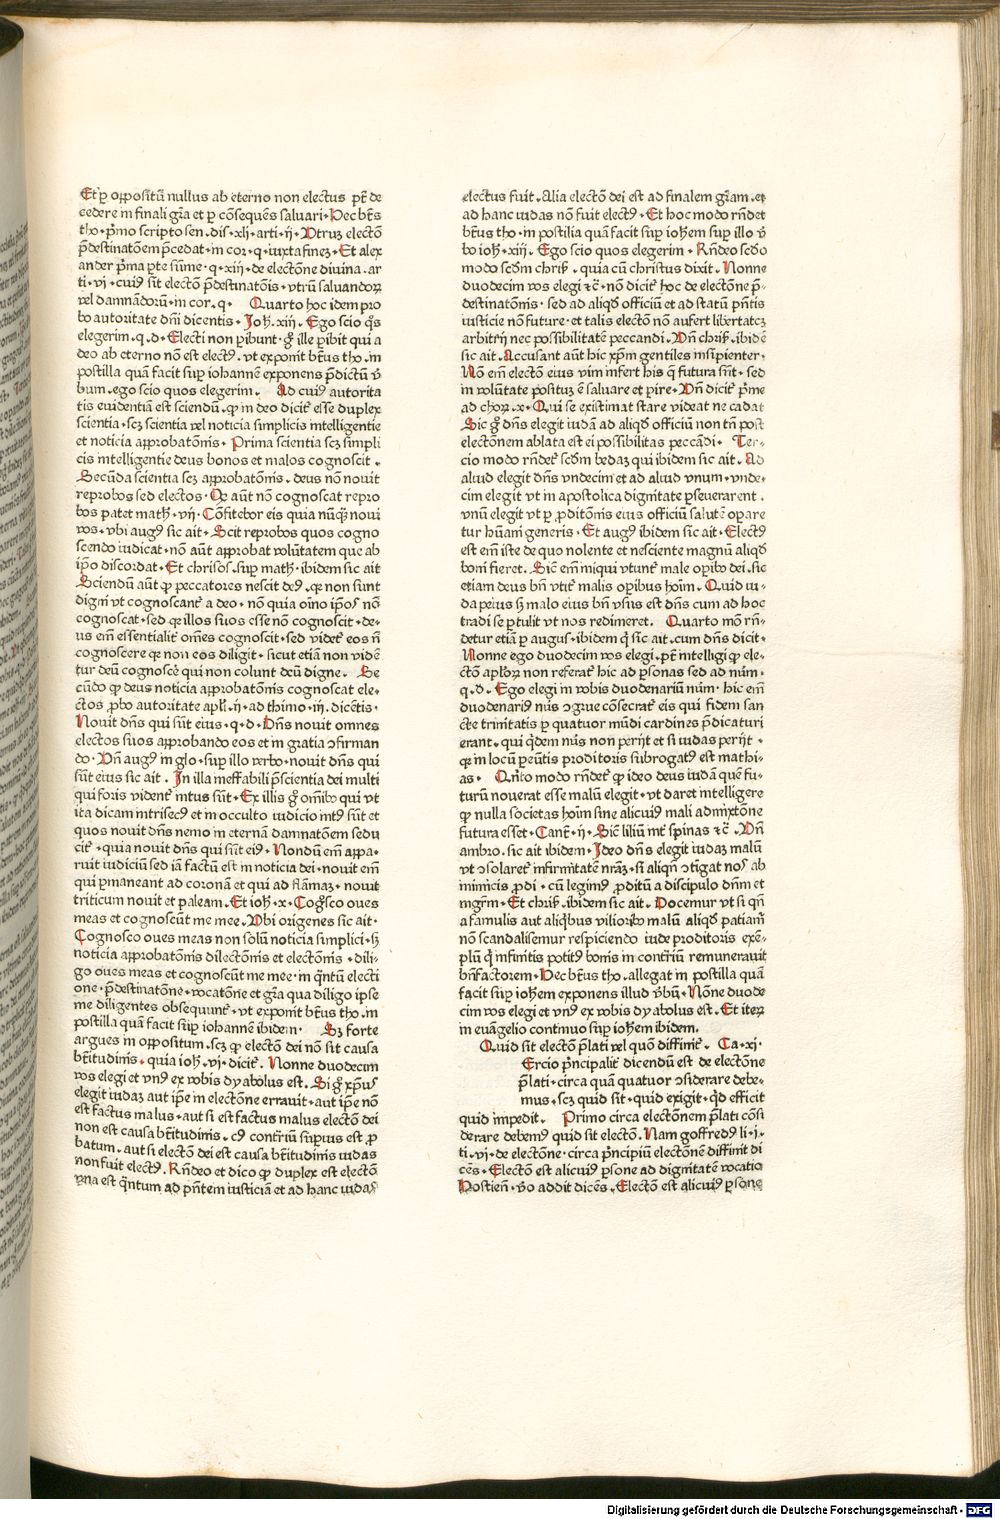 Et ꝑ oppositū nullus ab eterno non electus pt̄ de
cedere in finali gr̄a et ꝑ cōsequēs saluari. Hec bt̄s
tho. pͥmo scripto sen. dis. xlj. arti. ij. Vtruꝫ electō
p̄destinatōem p̄cedat. in cor. q. iuxta fineꝫ. Et alex
ander pͥma ꝑte sūme. q. xiij. de electōne diuina. ar
ti. vj. cuiꝰ sit electō p̄destinatōis. vtrū saluandoꝝ
vel damnādorū. in cor. q. Quarto hoc idem pro
bo autoritate dn̄i dicentis. Joh̄. xiij. Ego scio qͦs
elegerim. q. d. Electi non ꝑibunt. gͦ ille ꝑibit qui a
deo ab eterno nō est electꝰ. vt exponit bt̄us tho. in
postilla quā facit suꝑ iohannē exponens p̄dictū ṽ
bum. ego scio quos elegerim. Ad cuiꝰ autorita
tis euidentiā est sciendū. ꝙ in deo dicit̄ esse duplex
scientia. scꝫ scientia vel noticia simplicis intelligentie
et noticia approbatōnis. Prima scientia scꝫ simpli
cis intelligentie deus bonos et malos cognoscit.
Secūda scientia scꝫ approbatōnis. deus nō nouit
reprobos sed electos. Qꝫ aūt nō cognoscat repro
bos patet math̄. vij. Cōfitebor eis quia nūqͣꝫ noui
vos. vbi augꝰ sic ait. Scit reprobos quos cogno
scendo iudicat. nō aūt approbat volūtatem que ab
ip̄o discordat. Et chrisos. suꝑ math̄. ibidem sic ait
Sciendū aūt ꝙ peccatores nescit deꝰ. qꝛ non sunt
digni vt cognoscant̄ a deo. nō quia oīno ip̄os nō
cognoscat. sed qꝛ illos suos esse nō cognoscit. de-
us em̄ essentialit̄ om̄es cognoscit. sed videt̄ eos n̄
cognoscere qꝛ non eos diligit. sicut etiā non vidē
tur deū cognoscē qui non colunt deū digne. Se
cūdo ꝙ deus noticia approbatōnis cognoscat ele-
ctos ꝓbo autoritate apl̄i. ij. ad thimo. iij. dicētis.
Nouit dn̄s qui sūt eius. q. d. Dn̄s nouit omnes
electos suos approbando eos et in gratia ↄfirman
do. Vn̄ augꝰ in glo. suꝑ illo verbo. nouit dn̄s qui
sūt eius sic ait. In illa ineffabili p̄scientia dei multi
qui foris vident̄ intus sūt. Ex illis gͦ om̄ibꝰ qui vt
ita dicam intrisecꝰ et in occulto iudicio intꝰ sūt et
quos nouit dn̄s nemo in eternā damnatōem sedu
cit̄. quia nouit dn̄s qui sūt eiꝰ. Nondū em̄ appa-
ruit iudiciū sed iā factū est in noticia dei. nouit em̄
qui ꝑmaneant ad coronā et qui ad flāmaꝫ. nouit
triticum nouit et paleam. Et ioh̄. x. Cogͦsco oues
meas et cognoscūt me mee. Vbi origenes sic ait.
Cognosco oues meas non solū noticia simplici. sꝫ
noticia approbatōnis dilectōnis et electōnis. dili-
go oues meas et cognoscūt me mee. in qͣntū electi
one. p̄destinatōne. vocatōne et gr̄a qua diligo ipse
me diligentes obsequunt̄. vt exponit bt̄us tho. in
postilla quā facit suꝑ iohannē ibidem. Sꝫ forte
argues in oppositum. scꝫ ꝙ electō dei nō sit causa
bt̄itudinis. quia ioh̄. vj. dicit̄. Nonne duodecim
vos elegi et vnꝰ ex vobis dyabolus est. Si gͦ xp̄us
elegit iudaꝫ aut ip̄e in electōne errauit. aut ip̄e nō
est factus malus. aut si est factus malus electō dei
non est causa bt̄itudinis. cꝰ contͥriū supius est ꝓ
batum. aut si electō dei est causa bt̄itudinis iudas
non fuit electꝰ. Rn̄deo et dico ꝙ duplex est electō
vna est qͣntum ad pn̄tem iusticiā et ad hanc iudas
electus fuit. Alia electō dei est ad finalem gr̄am. et
ad hanc iudas nō fuit electꝰ. Et hoc modo rn̄det
bt̄us tho. in postilla quā facit suꝑ ioh̄em suꝑ illo ṽ
bo ioh̄. xiij. Ego scio quos elegerim. Rn̄deo scd̄o
modo scd̄m chriſ. quia cū christus dixit. Nonne
duodecim vos elegi ⁊c̄. nō dicit̄ hoc de electōne p̄-
destinatōnis. sed ad aliqd̓ officiū et ad statū pn̄tis
iusticie nō future. et talis electō nō aufert libertateꝫ
arbitrij nec possibilitatē peccandi. Vn̄ chriſ. ibidē
sic ait. Accusant aūt hic xp̄m gentiles insipienter.
Nō em̄ electō eius vim infert his q̄ futura sūt. sed
in volūtate positus ē saluare et ꝑire. Vn̄ dicit̄ pͥme
ad choꝝ. x. Qui se existimat stare videat ne cadat
Sic gͦ dn̄s elegit iudā ad aliqd̓ officiū non tn̄ post
electōnem ablata est ei possibilitas peccādi. Ter-
cio modo rn̄det̄ scd̄m bedaꝫ qui ibidem sic ait. Ad
aliud elegit dn̄s vndecim et ad aliud vnum. vnde-
cim elegit vt in apostolica dignitate ꝑseuerarent.
vnū elegit vt ꝑ ꝓditōnis eius officiū salutē oꝑare
tur hūani generis. Et augꝰ ibidem sic ait. Electꝰ
est em̄ iste de quo nolente et nesciente magnū aliqd̓
boni fieret. Sic̄ em̄ iniqui vtunt̄ male oꝑibꝰ dei. sic
etiam deus bn̄ vtit̄ malis oꝑibus hoīm. Quid iu-
da peius sꝫ malo eius bn̄ vsus est dn̄s cum ad hoc
tradi se ꝑtulit vt nos redimeret. Quarto mō rn̄-
detur etiā ꝑ augus. ibidem q̄ sic̄ ait. cum dn̄s dicit.
Nonne ego duodecim vos elegi. pt̄ intelligi ꝙ ele-
ctō apl̄oꝝ non referat̄ hic ad ꝑsonas sed ad nūm.
q. d. Ego elegi in vobis duodenariū nūm. hic em̄
duodenariꝰ nūs ↄgrue cōsecrat̄ eis qui fidem san
cte trinitatis ꝑ quatuor mūdi cardines p̄dicaturi
erant. qui qͥdem nūs non perijt et si iudas perijt.
qꝛ in locū ꝑeūtis proditoris subrogatꝰ est mathi-
as. Qn̄to modo rn̄det̄ ꝙ ideo deus iudā quē fu-
turū nouerat esse malū elegit. vt daret intelligere
ꝙ nulla societas hoīm sine alicuiꝰ mali admixtōne
futura esset. Cant̄. ij. Sic̄ liliū int̄ spinas ⁊c̄. Vn̄
ambro. sic ait ibidem. Ideo dn̄s elegit iudaꝫ malū
vt ↄsolaret̄ infirmitatē nr̄aꝫ. si aliqn̄ ↄtigat nos ab
inimicis ꝓdi. cū legimꝰ ꝓditū a discipulo dn̄m et
mgr̄m. Et chriſ. ibidem sic ait. Docemur vt si qn̄
a famulis aut aliqͥbus viliorībꝰ malū aliqd̓ patiam̄
nō scandalisemur respiciendo iude proditoris exē-
plū qͥ infinitis potitꝰ bonis in contͥriū remunerauit
bn̄factorem. Hec bt̄us tho. allegat in postilla quā
facit suꝑ ioh̄em exponens illud ṽbū. Nōne duode
cim vos elegi et vnꝰ ex vobis dyabolus est. Et iteꝝ
in euāgelio continuo suꝑ ioh̄em ibidem.
Quid sit electō p̄lati vel quō diffinit̄. Ca. xj.
Ercio pͥncipalit̄ dicendū est de electōne
p̄lati. circa quā quatuor ↄsiderare debe-
mus. scꝫ quid sit. quid exigit. qd̓ efficit
quid impedit. Primo circa electōnem p̄lati cōsi
derare debemꝰ quid sit electō. Nam goffredꝰ li. j.
ti. vj. de electōne. circa pͥncipiū electōnē diffinit di
cēs. Electō est alicuiꝰ ꝑsone ad dignitatē vocatio
Hostien̄. ṽo addit dicēs. Electō est alicuiꝰ ꝑsone
Digitalisierung gefördert durch die Deutsche Forschungsgemeinschaft - DFG